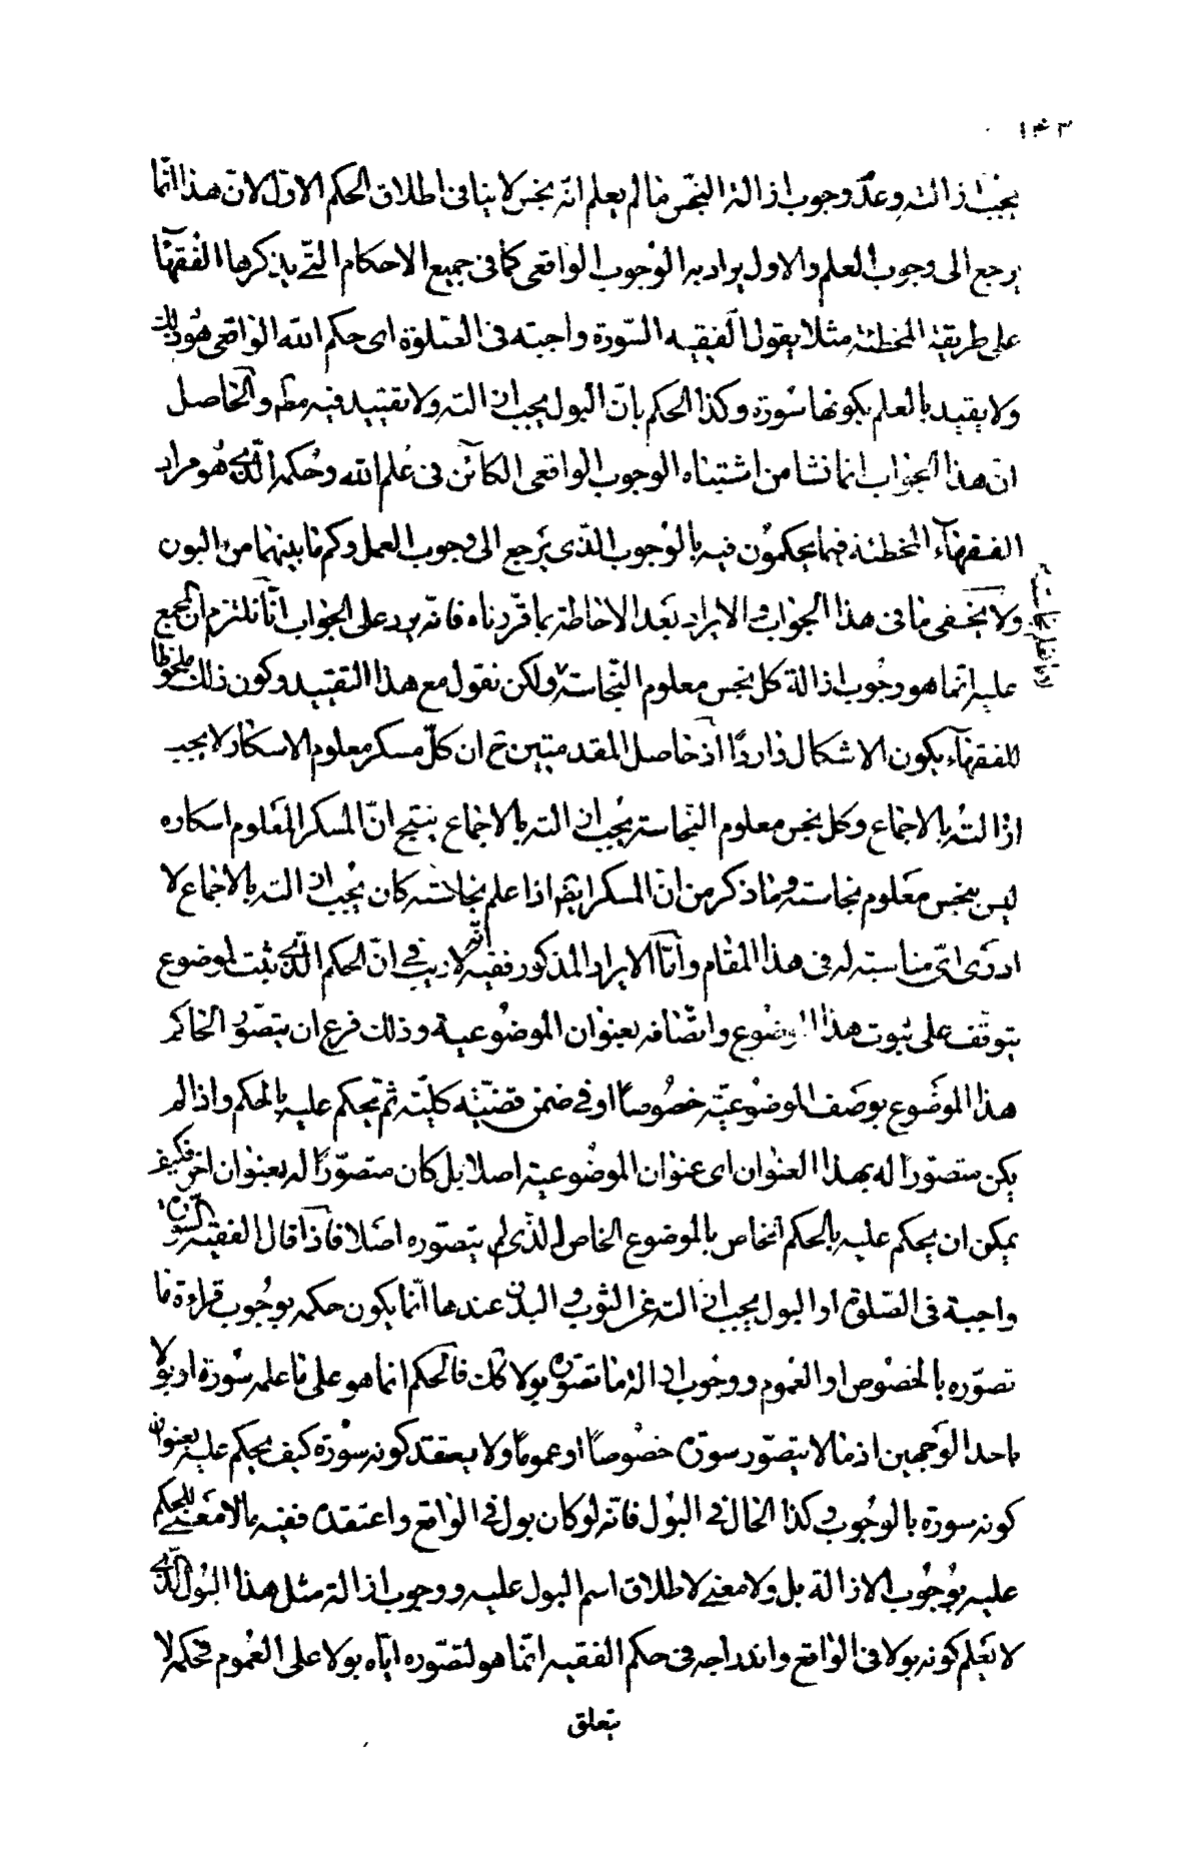 ١٤٣
يجب ازالته وعدم وجوب ازالة النجس ما لم يعلم انّه نجس لا ينافى اطلاق الحكم الاوّل لانّ هذا انّما
يرجع الى وجوب العلم والاول يراد به الوجوب الواقعى كما فى جميع الاحكام الّتى يذكرها الفقهاء
على طريقة المخطئة مثلا يقول الفقيه السّورة واجبته فى الصّلوة اى حكم الله الواقعى هو ذلك
ولا يقيد بالعلم بكونها سورة وكذا الحكم بانّ البول يجب ازالته ولا تقييد فيه مط والحاصل
انّ هذا الجواب انما نشا من اشتباه الوجوب الواقعى الكائن فى علم الله وحكمه الّذى هو مراد
الفقهاء المخطئة فيما يحكمون فيه بالوجوب الذى يرجع الى وجوب العمل وكم ما بينهما من البون
ولا يخفى ما فى هذا الجواب والايراد بعد الاحاطة بما قرّرناه فانّه يرد على الجواب انّا نلتزم انّ المجمع
عليه انّما هو وجوب ازالة كل نجس معلوم النّجاسة ولكن نقول مع هذا التقييد وكون ذلك ملحوظا
للفقهاء يكون الاشكال واردًا اذ حاصل المقدمتين ح ان كلّ مسكر معلوم الاسكار لا يجب
ازالته بالاجماع وكل نجس معلوم النّجاسة يجب ازالته بالاجماع ينتج انّ المسكر المعلوم اسكاره
ليس بنجس معلوم نجاسته وما ذكر من انّ المسكر ايضا اذا علم نجاسته كان يجب ازالته بالاجماع لا
ادرى اىّ مناسبته له فى هذا المقام وامّا الايراد المذكور ففيه انّه لا ريب فى انّ الحكم الّذى يثبت لموضوع
يتوقّف على ثبوت هذا الموضوع واتّصافه بعنوان الموضوعية وذلك فرع ان يتصوّر الحاكم
هذا الموضوع بوصف الموضوعيّة خصوصًا او فى ضمن قضيّة كلّيّة ثمّ يحكم عليه بالحكم واذا لم
يكن متصورًا له بهذا العنوان اى عنوان الموضوعية اصلا بل كان متصوّرًا له بعنوان اخر فكيف
يمكن ان يحكم عليه بالحكم الخاص بالموضوع الخاص الذى لم يتصوره اصلا فاذا قال الفقيه السورة
واجبة فى الصّلوة او البول يجب ازالته عن الثوب والبدن عندها انّما يكون حكمه بوجوب قراءة ما
تصوّره بالخصوص او العموم ووجوب ازالة ما تصوّره بولا كك فالحكم انما هو على ما علمه سورة او بولا
باحد الوجهين اذ ما لا يتصوّر سورة خصوصًا او عمومًا ولا يعتقد كونه سورة كيف يحكم عليه بعنوان
كونه سورة بالوجوب وكذا الحال فى البول فانّه لو كان بول فى الواقع واعتقده ففيه بالا معنى للحكم
عليه بوجوب الازالة بل ولا معنى لاطلاق اسم البول عليه ووجوب ازالة مثل هذا البول الّذى
لا يعلم كونه بولا فى الواقع واندراجه فى حكم الفقيه انّما هو لتصوّره ايّاه بولا على العموم فحكمه لا
يتعلق